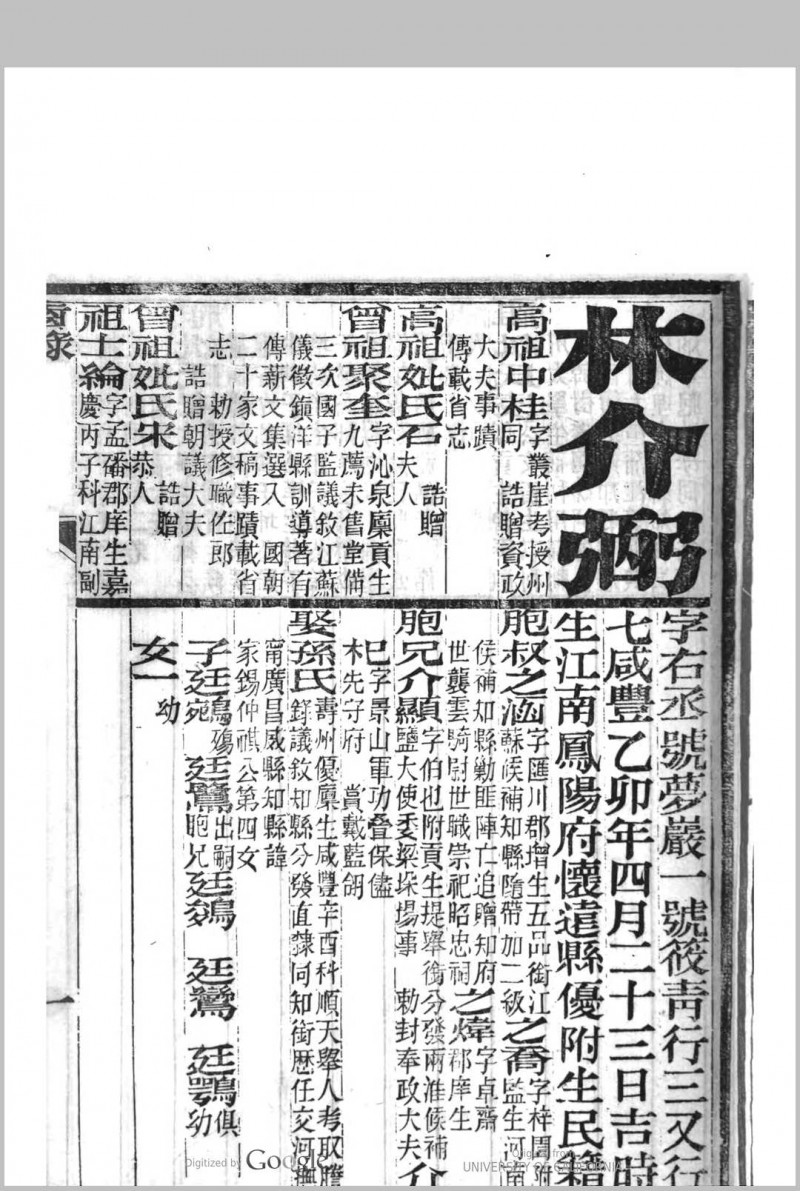 林介弼
字右丞號夢巖一號筱青行三又行
七咸豐乙卯年四月二十三日吉時
生江南鳳陽府懷遠縣優附生民籍
高祖中桂字叢崖考授州同 誥贈資政
大夫事蹟
傳載省志
高祖妣氏石 誥贈夫人
曾祖聚奎字沁泉廩貢生九薦未售堂備
三次國子監議敘江蘇
儀徵鎮洋縣訓導著有
傳薪文集選入 國朝
二十家文稿事蹟載省
志 勅授修職佐郎
誥贈朝議大夫
曾祖妣氏宋 誥贈恭人
祖士綸字孟磻郡庠生嘉慶丙子科江南副
胞叔之涵字匯川郡增生五品銜江蘇候補知縣隨帶加二級 之喬字梓園附監生河南
候補知縣勦匪陣亡追贈知府
世襲雲騎尉世職崇祀昭忠祠 之煒字卓齋郡庠生
胞兄介顯字伯也附貢生提舉銜分發兩淮候補鹽大使委梁垛場事 勅封奉政大夫 介
杞字景山軍功叠保儘
林先守府 賞戴藍翎
娶孫氏壽州優廩生咸豐辛酉科順天舉人考取謄錄議敘知縣分發直隸同知銜歷任交河撫
甯廣昌威縣知縣諱
家錫仲祺公第四女
子廷鵷殤 廷鷺出嗣胞兄 廷鵷 廷鸞 廷鶚俱幼
女一幼
一
Digitized by Google
Original from
UNIVERSITY OF CALIFORNIA